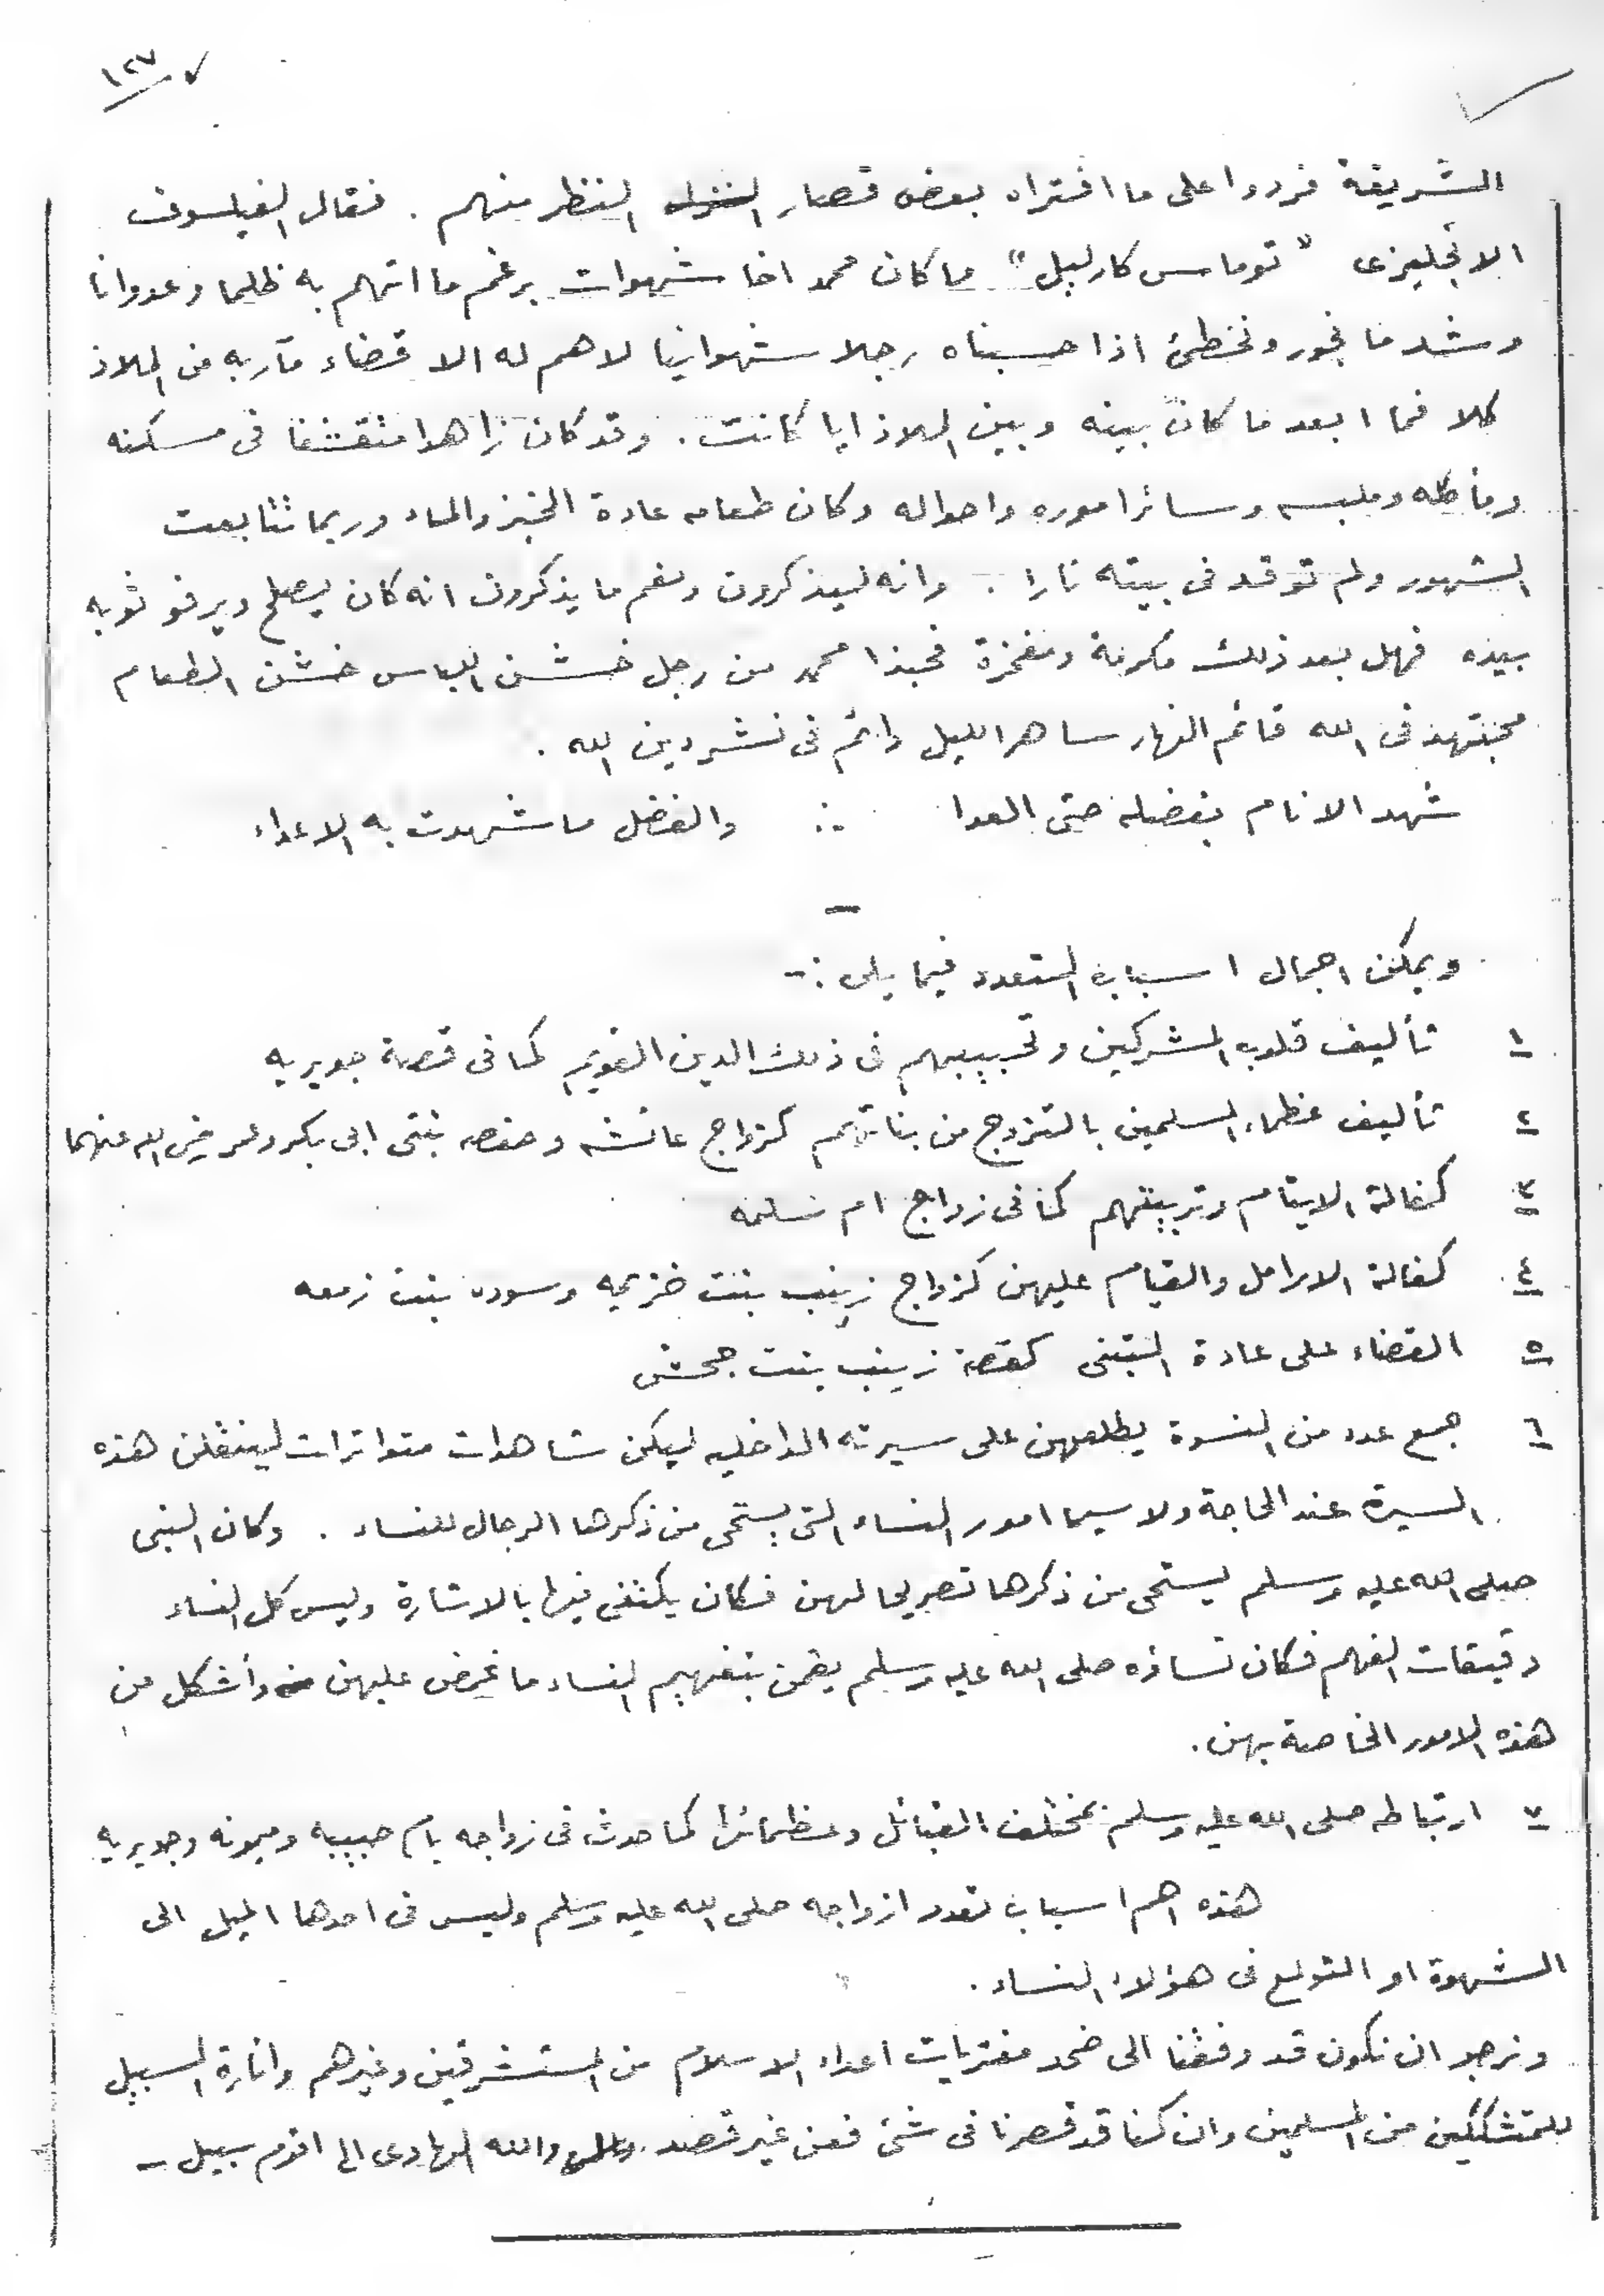 ١٢٧
الشريفة فردوا على ما افتراه بعض قصار النظر منهم . فقال الفيلسوف
الانجليزى " توماس كارليل " ما كان محمد اخا شهوات برغم ما اتهم به ظلما وعدوانا
وشد ما نجور ونخطئ اذا حسبناه رجلا شهوانيا لا هم له الا قضاء مآربه من الملاذ
كلا فما ابعد ما كان بينه وبين الملاذ ايا كانت . وقد كان زاهدا متقشفا فى مسكنه
ومأكله وملبسه وسائر اموره واحواله وكان طعامه عادة الخبز والماء وربما تتابعت
الشهور ولم توقد فى بيته نارا . وانه ليذكرون ونعم ما يذكرون انه كان يصلح ويرفو ثوبه
بيده فهل بعد ذلك مكرمة ومفخرة فحبذا محمد من رجل خشن اللباس خشن الطعام
مجتهد فى الله قائم النهار ساهر الليل دائم فى نشر دين الله .
شهد الانام بفضله حتى العدا ∴ والفضل ما شهدت به الاعداء
—
ويمكن اجمال اسباب التعدد فيما يلى :-
١ تأليف قلوب المشركين وتحبيبهم فى ذلك الدين القويم كما فى قصة جويريه
٢ تأليف عظماء المسلمين بالتزوج من بناتهم كزواج عائشه وحفصه بنتى ابى بكر وعمر رضى الله عنهما
٣ كفالة الايتام وتربيتهم كما فى زواج ام سلمه
٤ كفالة الارامل والقيام عليهن كزواج زينب بنت خزيمه وسوده بنت زمعه
٥ القضاء على عادة التبنى كقصة زينب بنت جحش
٦ جمع عدد من النسوة يطلعهن على سيرته الداخليه ليكن شاهدات متواترات لينقلن هذه
السيرة عند الحاجة ولا سيما امور النساء التى يستحى من ذكرها الرجال للنساء . وكان النبى
صلى الله عليه وسلم يستحى من ذكرها تصريحا لهن فكان يكتفى فيها بالاشارة وليس كل النساء
دقيقات الفهم فكان نساؤه صلى الله عليه وسلم يقمن بتفهيم النساء ما غمض عليهن وأشكل من
هذه الامور الخاصة بهن .
٧ ارتباطه صلى الله عليه وسلم بمختلف القبائل وعظمائها كما حدث فى زواجه بام حبيبه وميمونه وجويريه
هذه اهم اسباب تعدد ازواجه صلى الله عليه وسلم وليس فى احدها الميل الى
الشهوة او التولع فى هؤلاء النساء .
ونرجو ان نكون قد وفقنا الى ضحد مفتريات اعداء الاسلام من المستشرقين وغيرهم وانارة السبيل
للمتشككين من المسلمين وان كنا قد قصرنا فى شئ فعن غير قصد . والله الهادى الى اقوم سبيل –